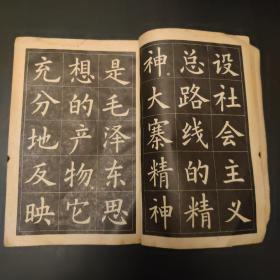 设社会主义
总路线的精
神大寨精神
是毛泽东思
想的产物它
充分地反映